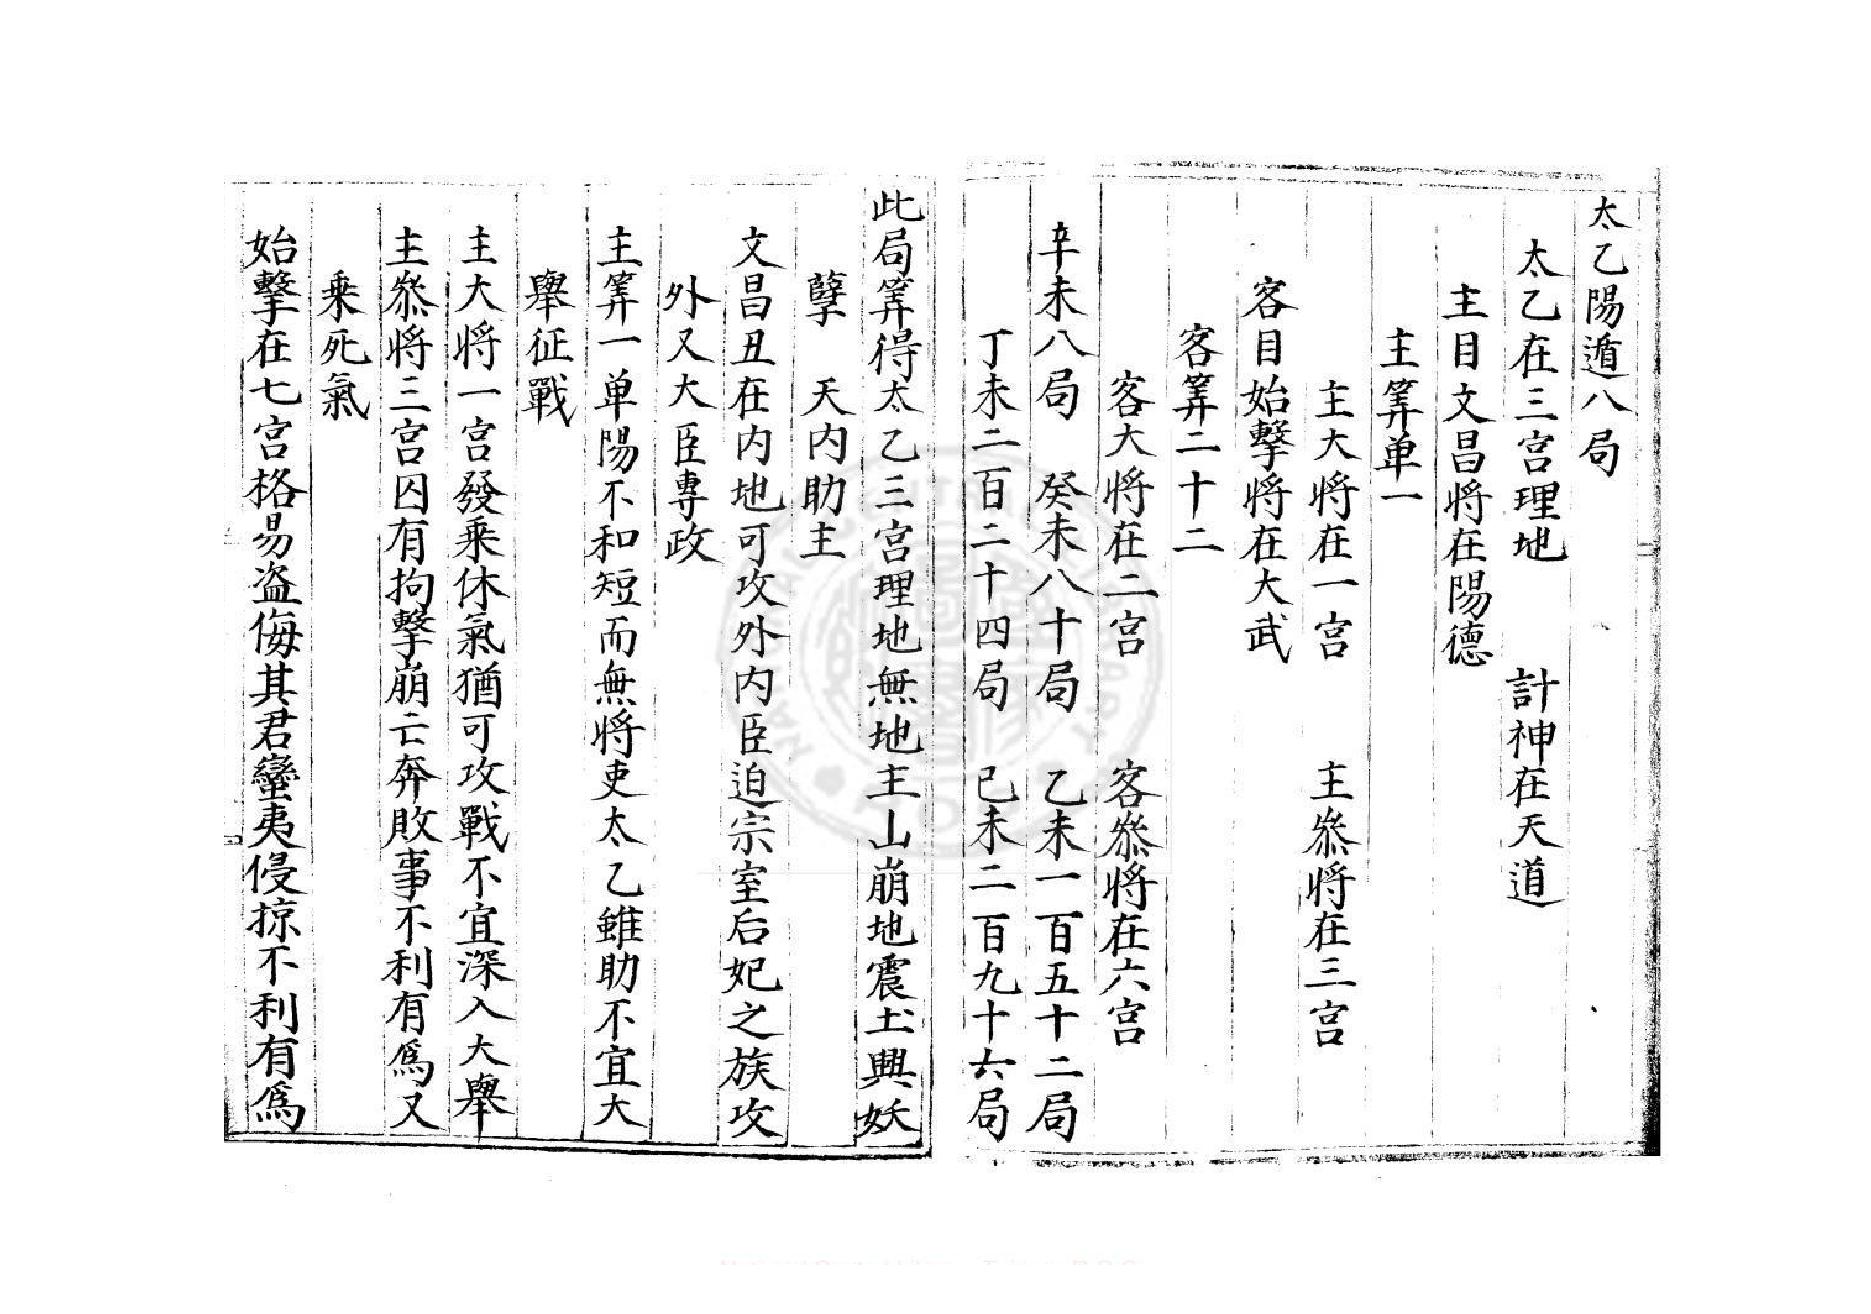 太乙陽遁八局
太乙在三宮理地　計神在天道
主目文昌將在陽德
主筭单一
主大將在一宮　主叅將在三宮
客目始擊將在大武
客筭二十二
客大將在二宮　客叅將在六宮
辛未八局　癸未八十局　乙未一百五十二局
丁未二百二十四局　己未二百九十六局
此局筭得太乙三宮理地無地主山崩地震土興妖
孽　天內助主
文昌丑在内地可攻外内臣迫宗室后妃之族攻
外又大臣專政
主筭一单陽不和短而無將吏太乙雖助不宜大
舉征戰
主大將一宮發乗休氣猶可攻戰不宜深入大舉
主叅將三宮囚有拘擊崩亡奔敗事不利有爲又
乗死氣
始擊在七宮格易盗侮其君蠻夷侵掠不利有爲